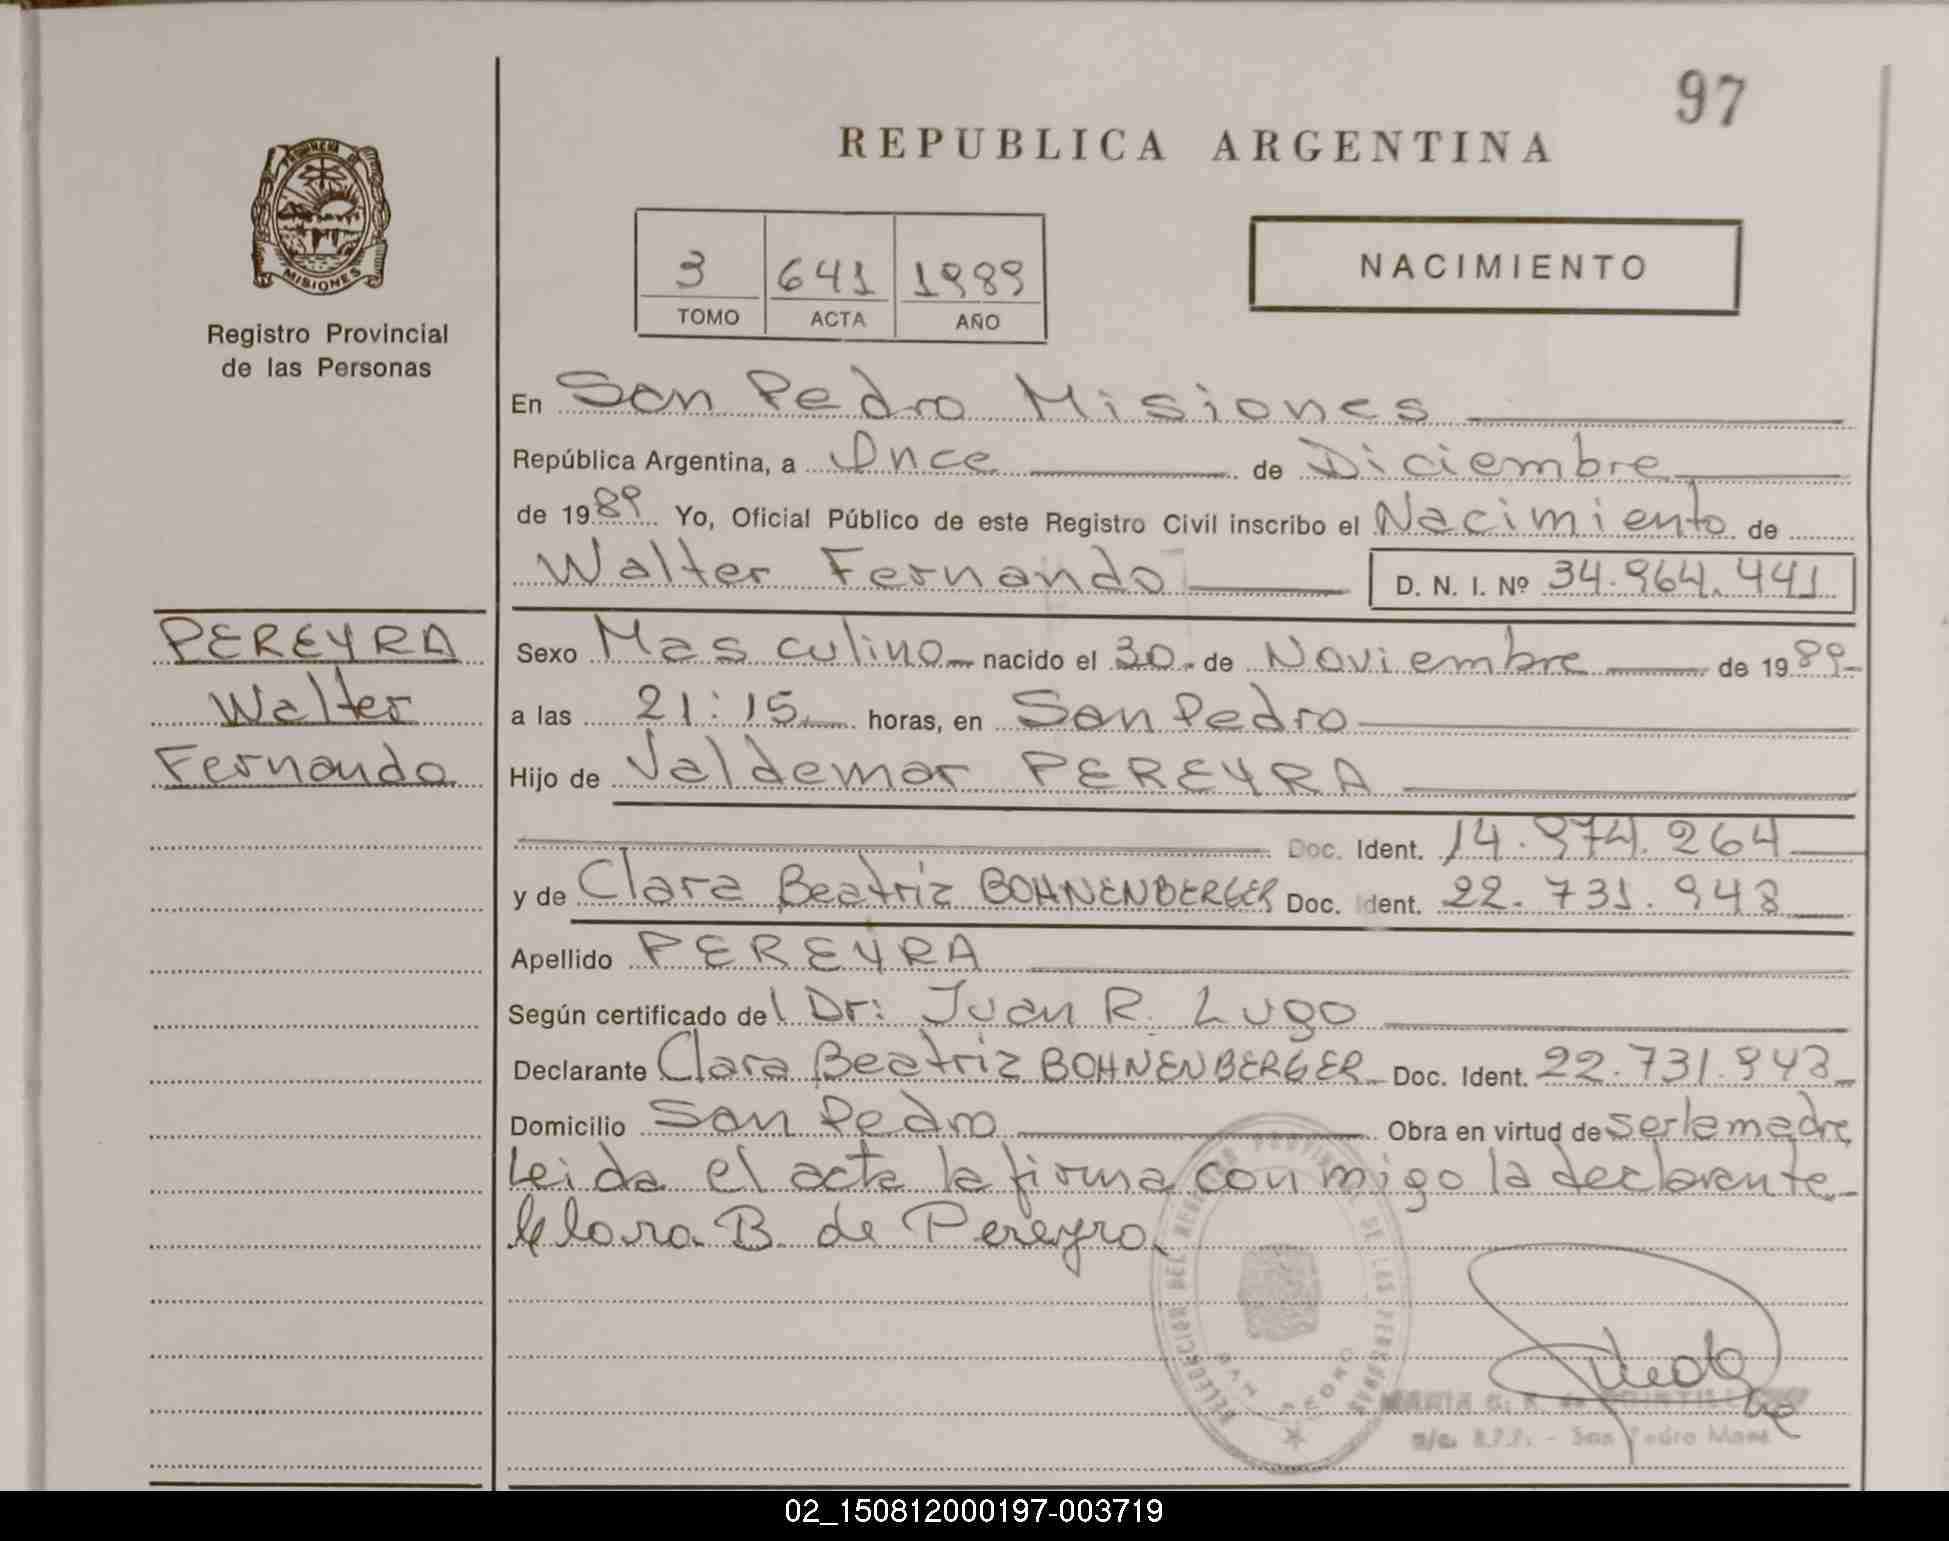 97
REPUBLICA ARGENTINA
PROVINCIA DE
MISIONES
Registro Provincial
de las Personas
3 641 1989
TOMO ACTA AÑO
NACIMIENTO
En San Pedro Misiones
República Argentina, a Once de Diciembre
de 1989 Yo, Oficial Público de este Registro Civil inscribo el Nacimiento de
Walter Fernando D. N. I. Nº 34.964.441
PEREYRA
Walter
Fernando
Sexo Masculino nacido el 30 de Noviembre de 1989
a las 21:15 horas, en San Pedro
Hijo de Valdemar PEREYRA
Doc. Ident. 14.974.264
y de Clara Beatriz BOHNENBERGER Doc. Ident. 22.731.948
Apellido PEREYRA
Según certificado del Dr: Juan R. Lugo
Declarante Clara Beatriz BOHNENBERGER Doc. Ident. 22.731.948
Domicilio San Pedro Obra en virtud de ser la madre
Leida el acta la firma con migo la declarante
Clara B. de Pereyra
DELEGACION DEL REGISTRO PROVINCIAL DE LAS PERSONAS
SAN PEDRO
MARIA
R.P.P. - San Pedro Mnes.
02_150812000197-003719